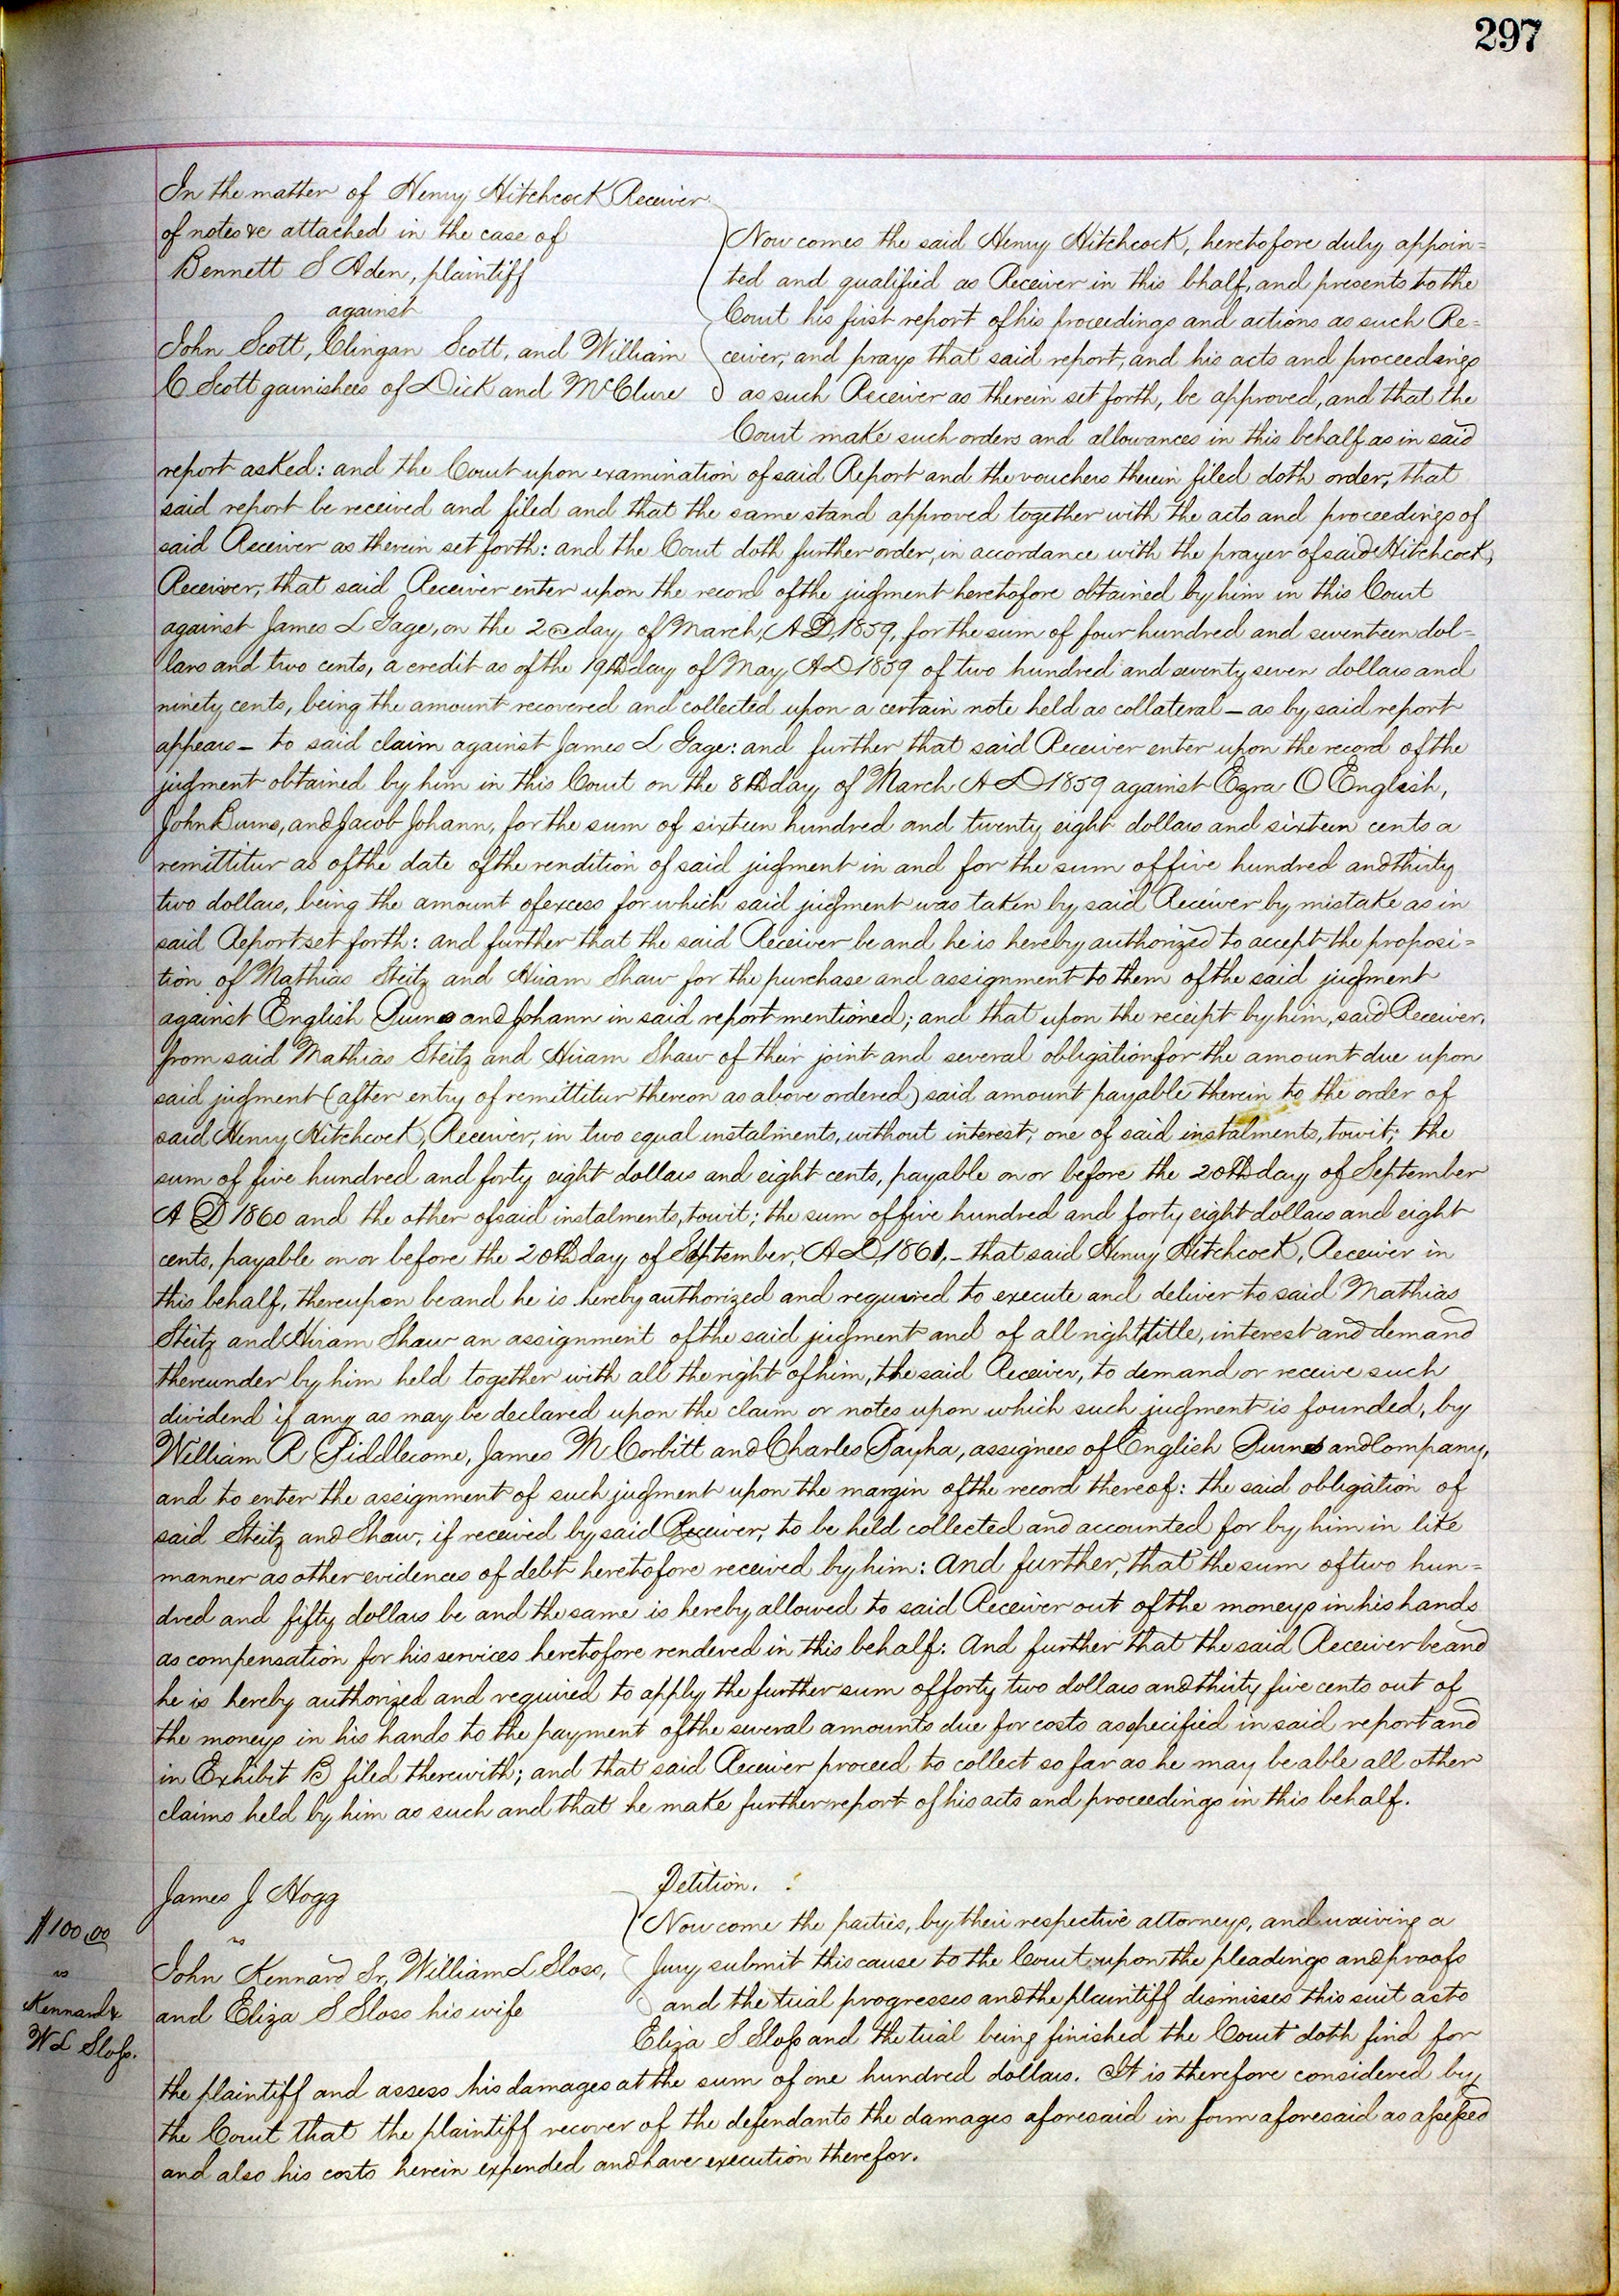 297
In the matter of Henry Hitchcock Receiver
of notes &c attached in the case of
Bennett S Aden, plaintiff
against
John Scott, Clingan Scott, and William
C Scott garnishees of Dick and McClure
Now comes the said Henry Hitchcock, heretofore duly appoin=
ted and qualified as Receiver in this bhalf, and presents to the
Court his first report of his proceedings and actions as such Re=
ceiver, and prays that said report, and his acts and proceedings
as such Receiver as therein set forth, be approved, and that the
Court make such orders and allowances in this behalf as in said
report asked: and the Court upon examination of said Report and the vouchers therein filed doth order, that
said report be received and filed and that the same stand approved together with the acts and proceedings of
said Receiver as therein set forth: and the Court doth further order, in accordance with the prayer of said Hitchcock,
Receiver, that said Receiver enter upon the record of the judgment heretofore obtained by him in this Court
against James L Gage, on the 2nd day of March, A D, 1859, for the sum of four hundred and seventeen dol=
lars and two cents, a credit as of the 19th day of May, A D 1859 of two hundred and seventy seven dollars and
ninety cents, being the amount recovered and collected upon a certain note held as collateral – as by said report
appears – to said claim against James L Gage: and further that said Receiver enter upon the record of the
judgment obtained by him in this Court on the 8th day of March A D 1859 against Ezra O English,
John Burns, and Jacob Johann, for the sum of sixteen hundred and twenty eight dollars and sixteen cents a
remittitur as of the date of the rendition of said judgment in and for the sum of five hundred and thirty
two dollars, being the amount of excess for which said judgment was taken by said Receiver by mistake as in
said Report set forth: and further that the said Receiver be and he is hereby authorized to accept the proposi=
tion of Mathias Steitz and Hiram Shaw for the purchase and assignment to them of the said judgment
against English Burns and Johann in said report mentioned; and that upon the receipt by him, said Receiver,
from said Mathias Steitz and Hiram Shaw of their joint and several obligation for the amount due upon
said judgment (after entry of remittitur thereon as above ordered) said amount payable therein to the order of
said Henry Hitchcock, Receiver, in two equal instalments, without interest, one of said instalments, towit; the
sum of five hundred and forty eight dollars and eight cents, payable on or before the 20th day of September
A D 1860 and the other of said instalments, towit; the sum of five hundred and forty eight dollars and eight
cents, payable on or before the 20th day of September, A D, 1861, – that said Henry Hitchcock, Receiver in
this behalf, thereupon be and he is hereby authorized and required to execute and deliver to said Mathias
Steitz and Hiram Shaw an assignment of the said judgment and of all right, title, interest and demand
thereunder by him held together with all the right of him, the said Receiver, to demand or receive such
dividend if any as may be declared upon the claim or notes upon which such judgment is founded, by
William R Piddlecome, James M Corbitt and Charles Payha, assignees of English Burns and Company,
and to enter the assignment of such judgment upon the margin of the record thereof: the said obligation of
said Steitz and Shaw, if received by said Receiver, to be held collected and accounted for by him in like
manner as other evidences of debt heretofore received by him: and further, that the sum of two hun=
dred and fifty dollars be and the same is hereby allowed to said Receiver out of the moneys in his hands
as compensation for his services heretofore rendered in this behalf: and further that the said Receiver be and
he is hereby authorized and required to apply the further sum of forty two dollars and thirty five cents out of
the moneys in his hands to the payment of the several amounts due for costs as specified in said report and
in Exhibit B filed therewith; and that said Receiver proceed to collect so far as he may be able all other
claims held by him as such and that he make further report of his acts and proceedings in this behalf.
James J Hogg
vs
John Kennard Sr, William L Sloss,
and Eliza S Sloss his wife
$100,00
vs
Kennard &
W L Sloss.
Petition.
Now come the parties, by their respective attorneys, and waiving a
Jury submit this cause to the Court upon the pleadings and proofs
and the trial progresses and the plaintiff dismisses this suit as to
Eliza S Sloss and the trial being finished the Court doth find for
the plaintiff and assess his damages at the sum of one hundred dollars. It is therefore considered by
the Court that the plaintiff recover of the defendants the damages aforesaid in form aforesaid as assessed
and also his costs herein expended and have execution therefor.